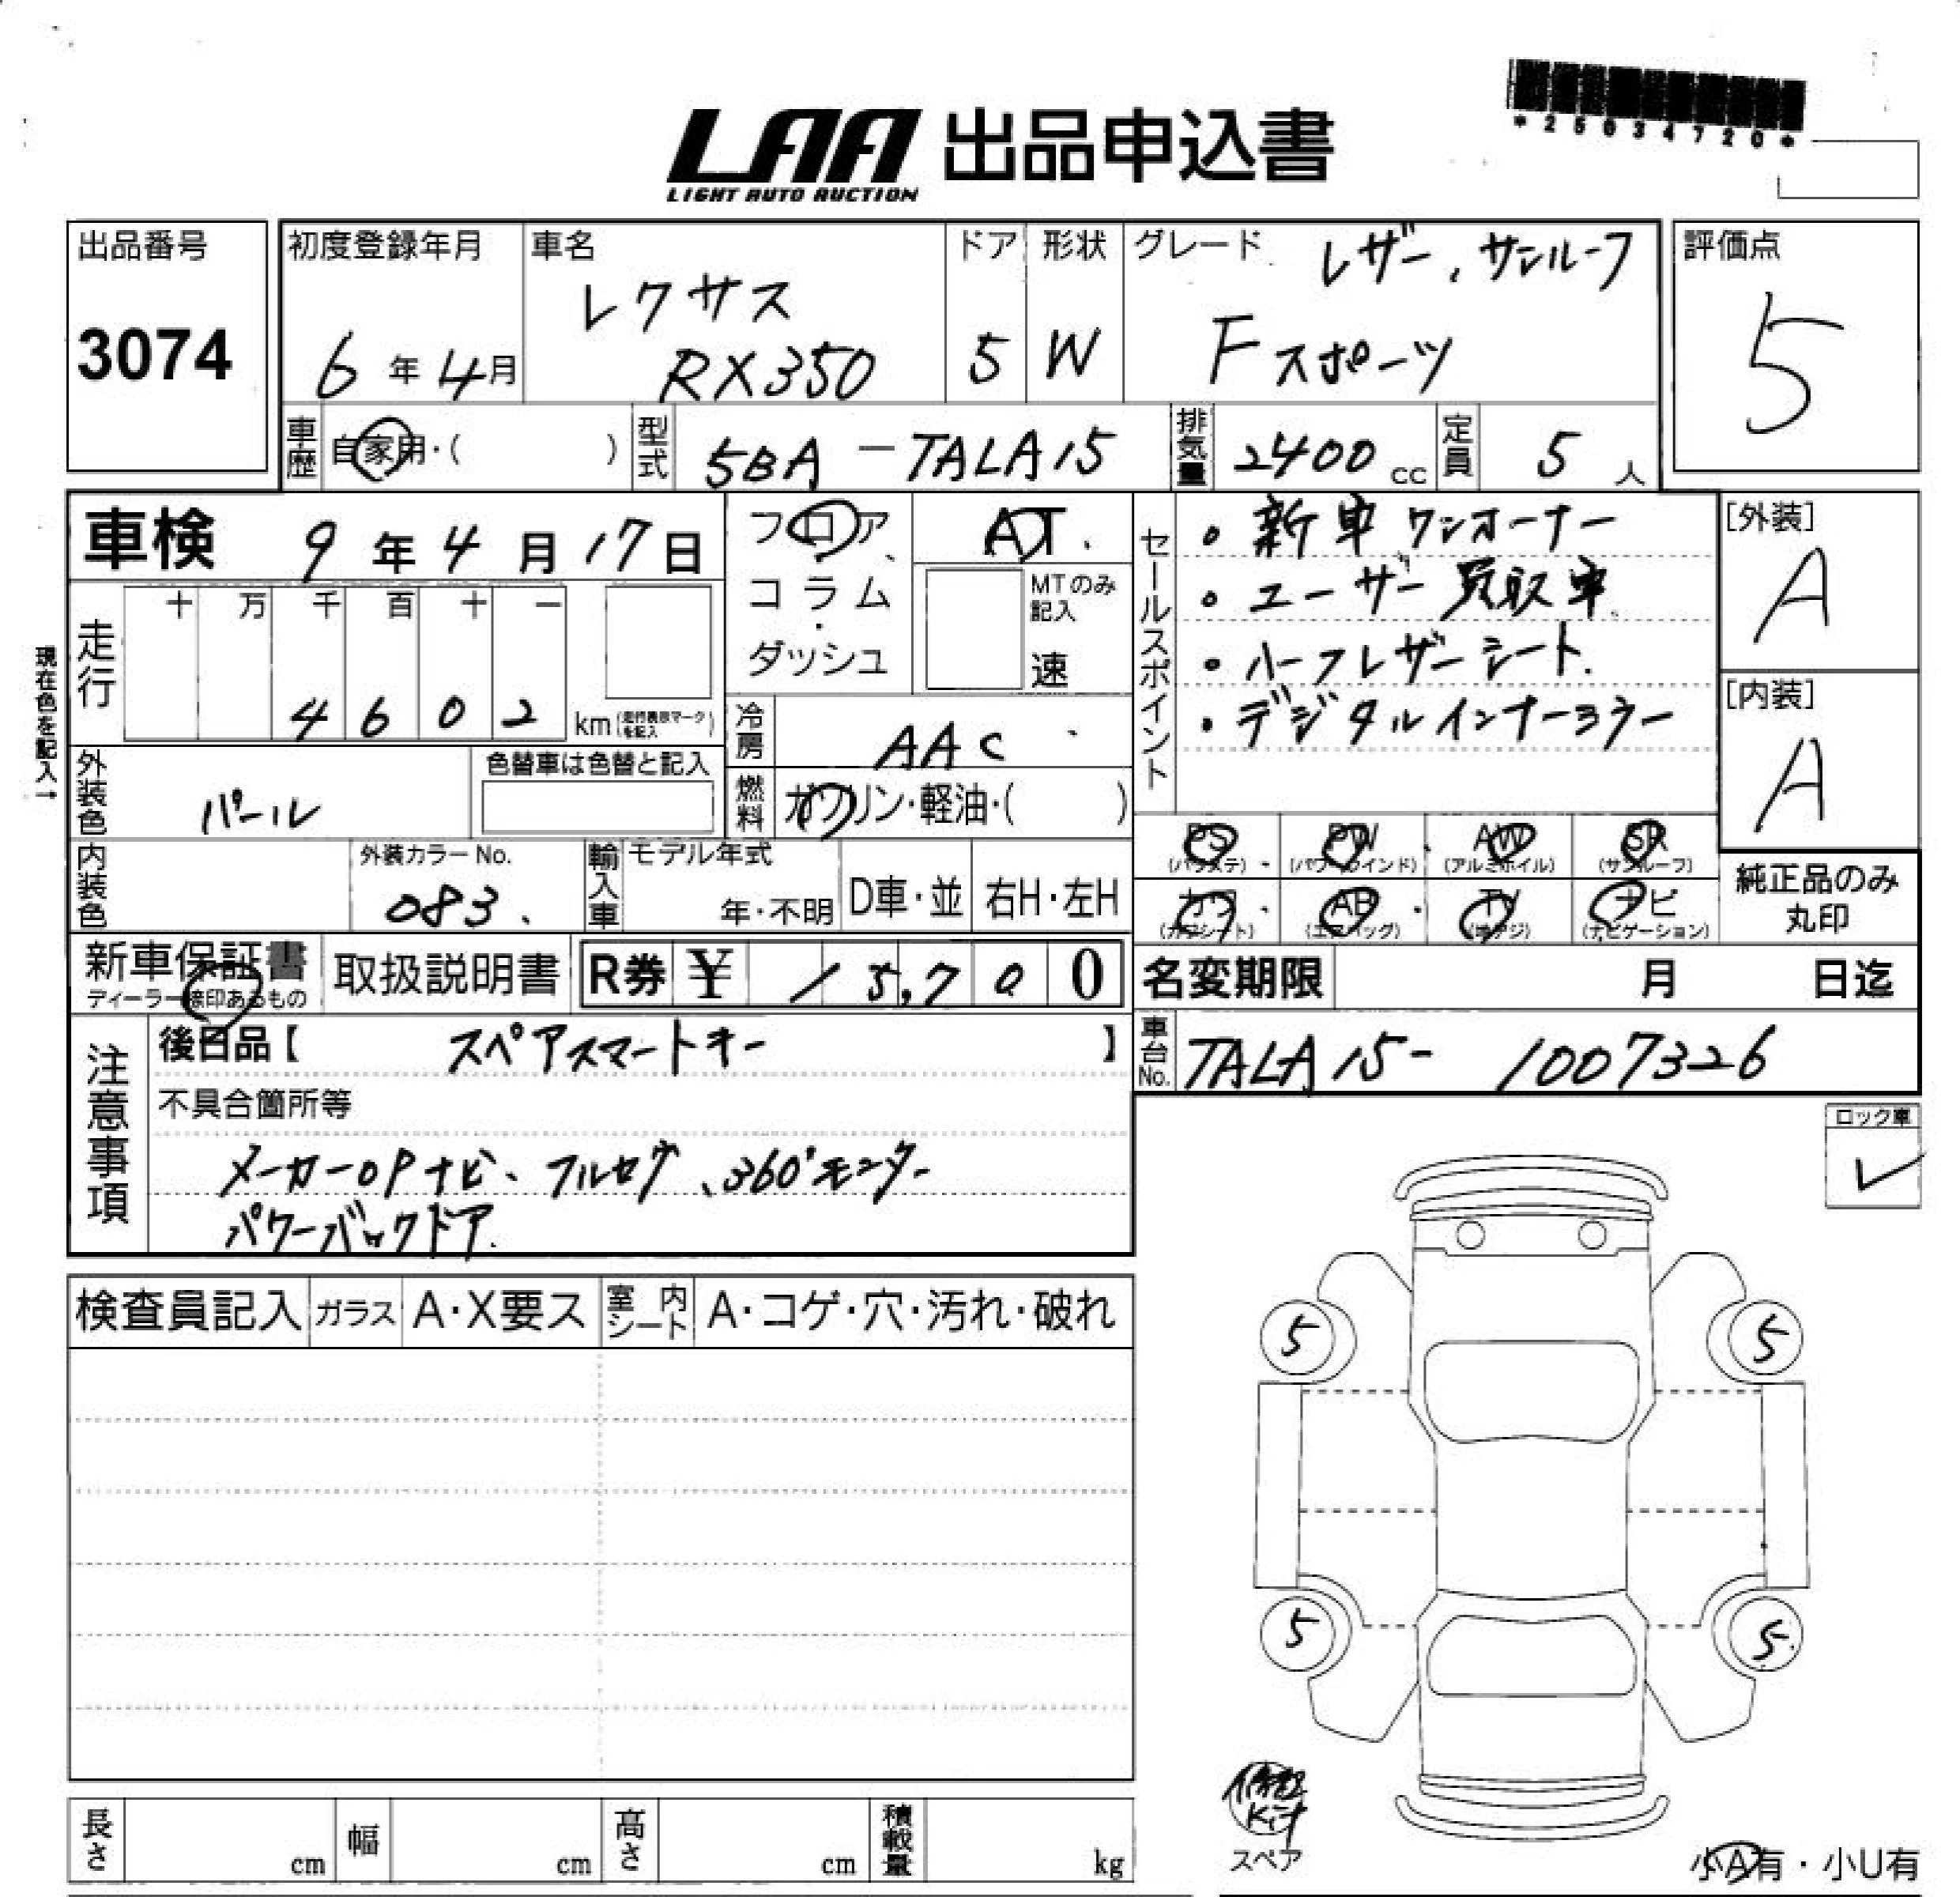 *25034720*
LAA 出品申込書
LIGHT AUTO AUCTION
出品番号
3074
初度登録年月
6年4月
車名
レクサス
RX350
ドア
5
形状
W
グレード
レザー、サンルーフ
Fスポーツ
評価点
5
車歴
自家用・( )
型式
5BA-TALA15
排気量
2400cc
定員
5人
車検 9年4月17日
フロア
コラム
・
ダッシュ
AT
MTのみ
記入
速
セールスポイント
・新車ワンオーナー
・ユーザー買取車
・ハーフレザーシート
・デジタルインナーミラー
[外装]
A
[内装]
A
現在色を記入→
走行
十 万 千 百 十 一
4 6 0 2 km (走行表示マークを記入)
冷房
AAC
外装色
パール
色替車は色替と記入
燃料
ガソリン・軽油・( )
内装色
外装カラーNo.
083
輸入車
モデル年式
年・不明
D車・並
右H・左H
PS
(パワステ)
PW
(パワーウインド)
AW
(アルミホイル)
SR
(サンルーフ)
カワ
(カワシート)
AB
(エアバッグ)
TV
(地デジ)
ナビ
(ナビゲーション)
純正品のみ
丸印
新車保証書
ディーラー捺印あるもの
取扱説明書
R券 ¥ 15,700
名変期限 月 日迄
注意事項
後日品【 スペアスマートキー 】
車台No.
TALA15-1007326
不具合箇所等
メーカーOPナビ、フルセグ、360°モニター
パワーバックドア
ロック車
✓
検査員記入
ガラス
A・X要ス
室内シート
A・コゲ・穴・汚れ・破れ
5
5
5
5
修理
Kit
スペア
小A有・小U有
長さ cm
幅 cm
高さ cm
積載量 kg